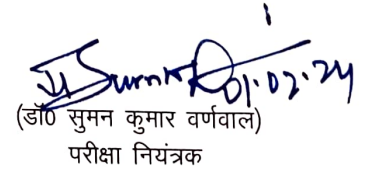 01.02.24
(डॉ0 सुमन कुमार वर्णवाल)
परीक्षा नियंत्रक